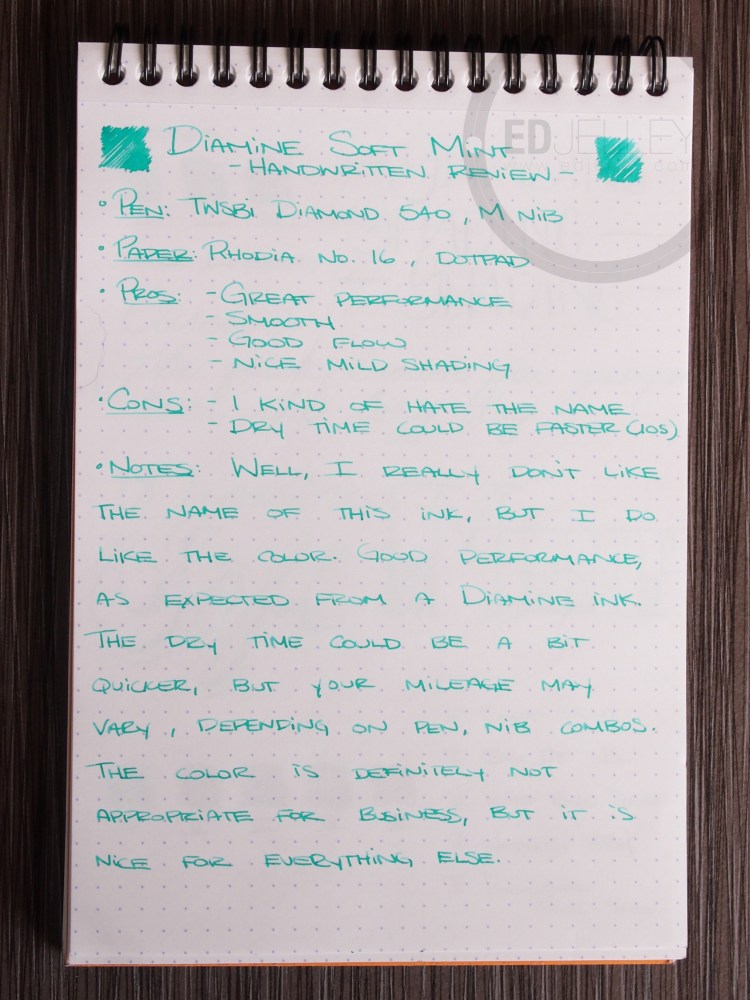 EDJELLEY
DIAMINE SOFT MINT
- HANDWRITTEN REVIEW -
• PEN: TWSBI DIAMOND 540, M NIB
• PAPER: RHODIA NO. 16, DOTPAD
• PROS: - GREAT PERFORMANCE
- SMOOTH
- GOOD FLOW
- NICE MILD SHADING
• CONS: - I KIND OF HATE THE NAME
- DRY TIME COULD BE FASTER (10S)
• NOTES: WELL, I REALLY DON'T LIKE
THE NAME OF THIS INK, BUT I DO
LIKE THE COLOR. GOOD PERFORMANCE,
AS EXPECTED FROM A DIAMINE INK.
THE DRY TIME COULD BE A BIT
QUICKER, BUT YOUR MILEAGE MAY
VARY, DEPENDING ON PEN, NIB COMBOS.
THE COLOR IS DEFINITELY NOT
APPROPRIATE FOR BUSINESS, BUT IT IS
NICE FOR EVERYTHING ELSE.